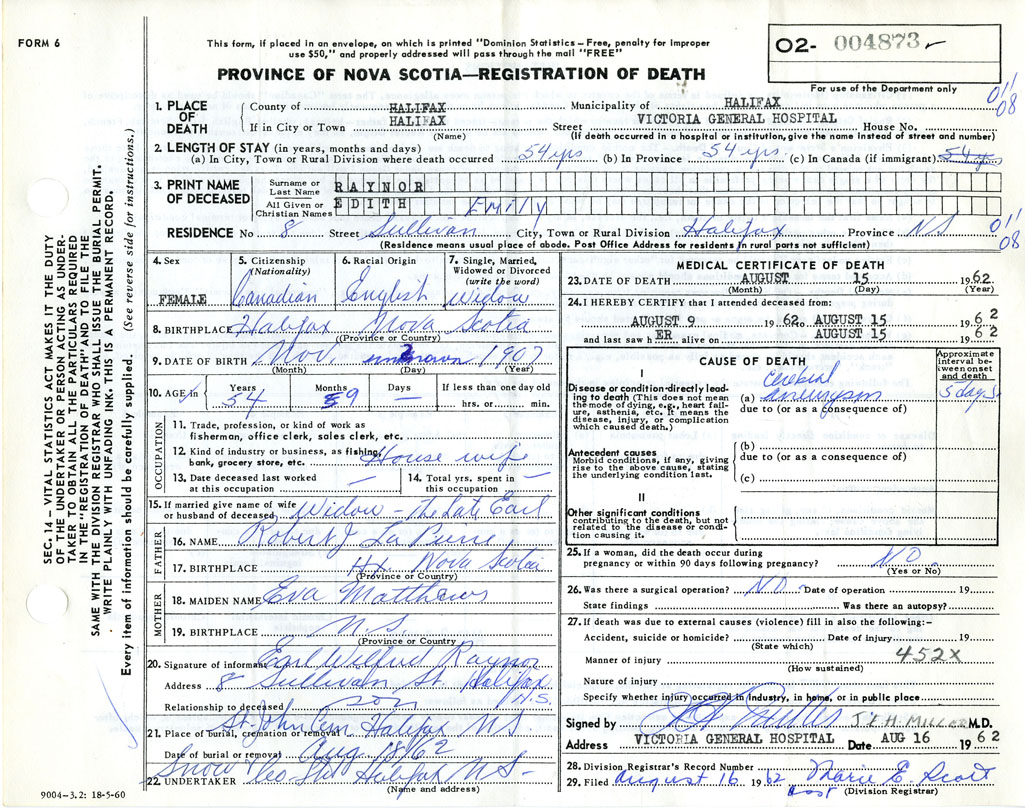 FORM 6
This form, if placed in an envelope, on which is printed "Dominion Statistics—Free, penalty for improper
use $50," and properly addressed will pass through the mail "FREE"
O2- 004873
PROVINCE OF NOVA SCOTIA—REGISTRATION OF DEATH
For use of the Department only
01/08
1. PLACE OF DEATH
County of HALIFAX Municipality of HALIFAX
If in City or Town HALIFAX Street VICTORIA GENERAL HOSPITAL House No.
(Name) (If death occurred in a hospital or institution, give the name instead of street and number)
2. LENGTH OF STAY (in years, months and days)
(a) In City, Town or Rural Division where death occurred 54 yrs (b) In Province 54 yrs (c) In Canada (if immigrant) 54 y
3. PRINT NAME OF DECEASED
Surname or Last Name RAYNOR
All Given or Christian Names EDITH Emily
RESIDENCE No 8 Street Sullivan City, Town or Rural Division Halifax Province NS
01/08
(Residence means usual place of abode. Post Office Address for residents in rural parts not sufficient)
4. Sex FEMALE
5. Citizenship (Nationality) Canadian
6. Racial Origin English
7. Single, Married, Widowed or Divorced (write the word) Widow
8. BIRTHPLACE Halifax Nova Scotia
(Province or Country)
9. DATE OF BIRTH Nov. 1907
(Month) (Day) (Year)
10. AGE in Years 54 Months 9 Days — If less than one day old hrs. or min.
OCCUPATION
11. Trade, profession, or kind of work as
fisherman, office clerk, sales clerk, etc.
12. Kind of industry or business, as fishing,
bank, grocery store, etc. House wife
13. Date deceased last worked
at this occupation —
14. Total yrs. spent in
this occupation —
15. If married give name of wife
or husband of deceased Widow - The Late Earl
FATHER
16. NAME Robert J La Pierre
17. BIRTHPLACE Hx Nova Scotia
(Province or Country)
MOTHER
18. MAIDEN NAME Eva Matthews
19. BIRTHPLACE N.S.
(Province or Country
20. Signature of informant Earl Wilfred Raynor
Address 8 Sullivan St. Halifax N.S.
Relationship to deceased son
21. Place of burial, cremation or removal St. John Cem Halifax NS
Date of burial or removal Aug 18 62
22. UNDERTAKER Snow Halifax NS-
(Name and address)
9004-3.2: 18-5-60
MEDICAL CERTIFICATE OF DEATH
23. DATE OF DEATH AUGUST 15 1962
(Month) (Day) (Year)
24. I HEREBY CERTIFY that I attended deceased from:
AUGUST 9 1962 AUGUST 15 1962
and last saw h ER alive on AUGUST 15 1962
CAUSE OF DEATH
Approximate interval between onset and death
I
Disease or condition directly leading to death (This does not mean the mode of dying, e.g., heart failure, asthenia, etc. It means the disease, injury, or complication which caused death.)
(a) Cerebral aneurysm 5 days
due to (or as a consequence of)
Antecedent causes
Morbid conditions, if any, giving rise to the above cause, stating the underlying condition last.
(b)
due to (or as a consequence of)
(c)
II
Other significant conditions
contributing to the death, but not related to the disease or condition causing it.
25. If a woman, did the death occur during
pregnancy or within 90 days following pregnancy? NO
(Yes or No)
26. Was there a surgical operation? NO Date of operation 19
State findings Was there an autopsy?
27. If death was due to external causes (violence) fill in also the following:-
Accident, suicide or homicide? Date of injury 19
(State which)
Manner of injury 452X
(How sustained)
Nature of injury
Specify whether injury occurred in industry, in home, or in public place
Signed by J.F.H. MILLER M.D.
Address VICTORIA GENERAL HOSPITAL Date AUG 16 1962
28. Division Registrar's Record Number
29. Filed August 16 1962 Marie E. Scott
(Division Registrar)
SEC. 14 - VITAL STATISTICS ACT MAKES IT THE DUTY
OF THE UNDERTAKER OR PERSON ACTING AS UNDER-
TAKER TO OBTAIN ALL THE PARTICULARS REQUIRED
IN THE "REGISTRATION OF DEATH" AND TO FILE THE
SAME WITH THE DIVISION REGISTRAR WHO SHALL ISSUE THE BURIAL PERMIT.
WRITE PLAINLY WITH UNFADING INK. THIS IS A PERMANENT RECORD.
Every item of information should be carefully supplied. (See reverse side for instructions.)